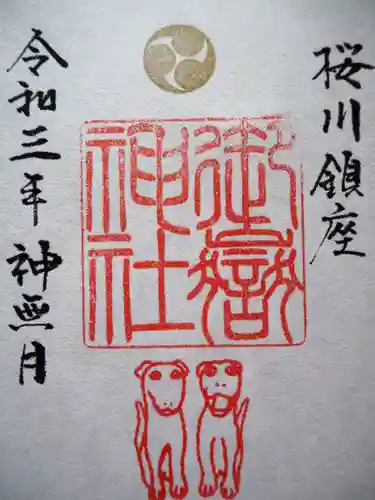 桜川鎮座
御嶽
神社
令和三年 神無月